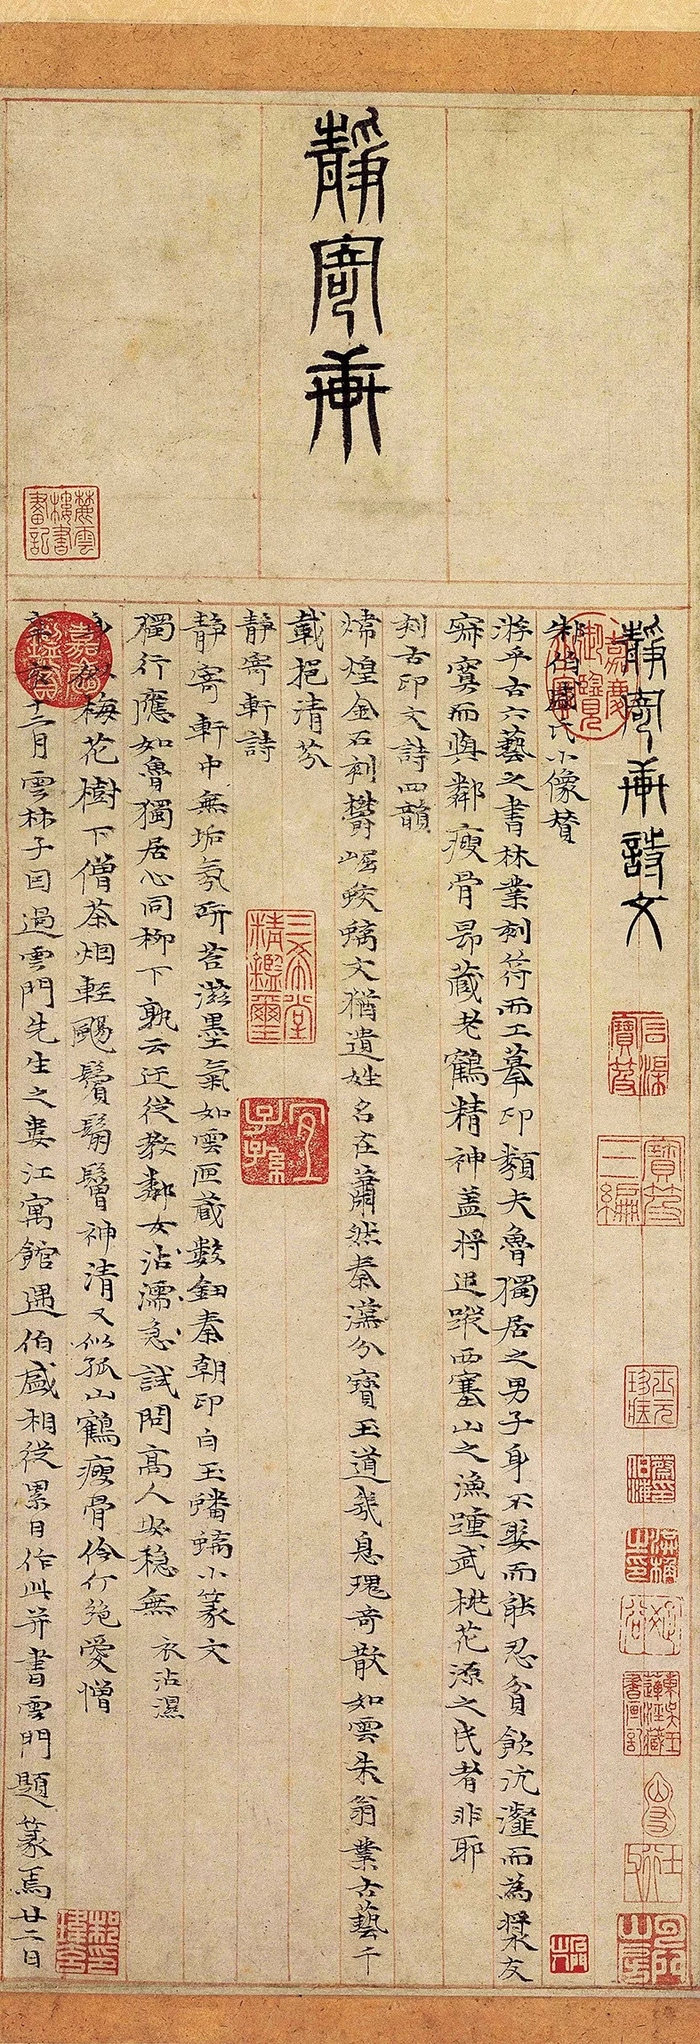 靜寄軒
靜寄軒詩文
朱伯盛氏小像贊
游乎古六藝之書林業刻符而工摹印類夫魯獨居之男子身不娶而能忍貧飲沆瀣而為漿友
寂寞而與鄰瘦骨昂藏老鶴精神蓋將追蹤西塞山之漁踵武桃花源之民者非耶
刻古印文詩四韻
煒煌金石刻鬱崛蛟螭文猶遺姓名在蕭然秦漢分寶玉道幾息瑰奇散如雲朱翁業古藝千
載挹清芬
靜寄軒詩
靜寄軒中無垢氛研苔滋墨氣如雲匣藏數鈕秦朝印白玉蟠螭小篆文
獨行應如魯獨居心同柳下孰云迂從教鄰女沾濡急試問高人安穩無 衣沾濕
身似梅花樹下僧茶烟輕颺鬢鬅鬙神清又似孤山鶴瘦骨伶仃絕愛憎
辛亥十二月雲林子因過雲門先生之婁江寓館遇伯盛相從累日作此并書雲門題篆焉廿二日
麓雲樓書畫記
嘉慶御覽之寶
嘉慶鑑賞
三希堂精鑑璽
宜子孫
寶笈三編
石門山房